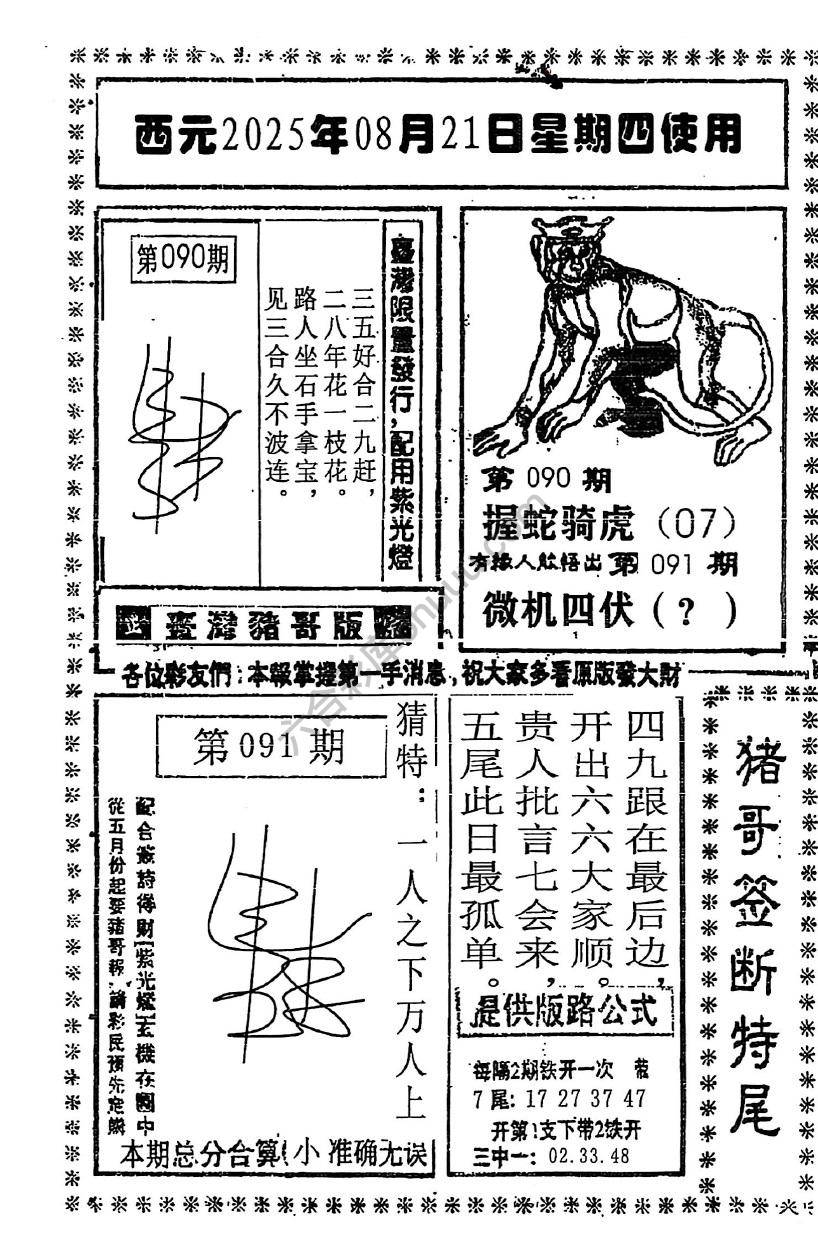 西元2025年08月21日星期四使用
第090期
三五好合二九赶，
二八年花一枝花。
路人坐石手拿宝，
见三合久不波连。
臺灣限量發行，配用紫光燈
第090期
握蛇骑虎（07）
有緣人能悟出第091期
微机四伏（？）
臺灣豬哥版
各位彩友們：本報掌握第一手消息，祝大家多看原版發大財
第091期
猜特：一人之下万人上
配合簽詩得財[紫光燈]玄機在圖中
從五月份起要豬哥報，請彩民預先定購
本期总分合算（小 准确无误
四九跟在最后边，
开出六六大家顺。
贵人批言七会来，
五尾此日最孤单。
提供版路公式
每隔2期铁开一次
7尾: 17 27 37 47
开第1支下带2铁开
三中一: 02.33.48
猪哥签断特尾
六合彩库